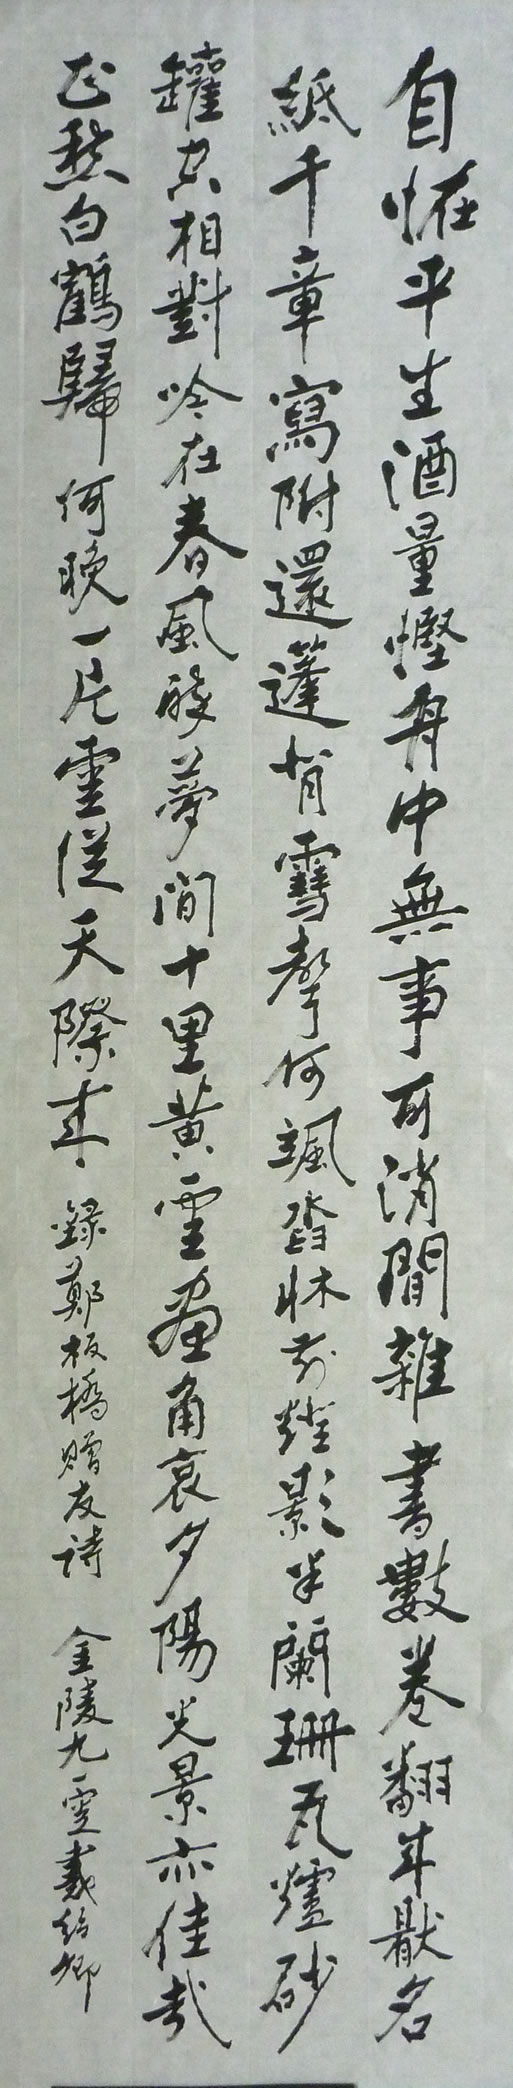 自怪平生酒量慳舟中無事可消閒雜書數卷翻年厭名
紙千章寫附還篷背雪聲何颯沓牀前燈影半闌珊瓦爐砂
罐空相對吟在春風夢間十里黃雲畫角哀夕陽光景亦佳哉
正愁白鶴歸何晚一片雲從天際來 錄鄭板橋贈友詩 金陵九雲戴紹卿